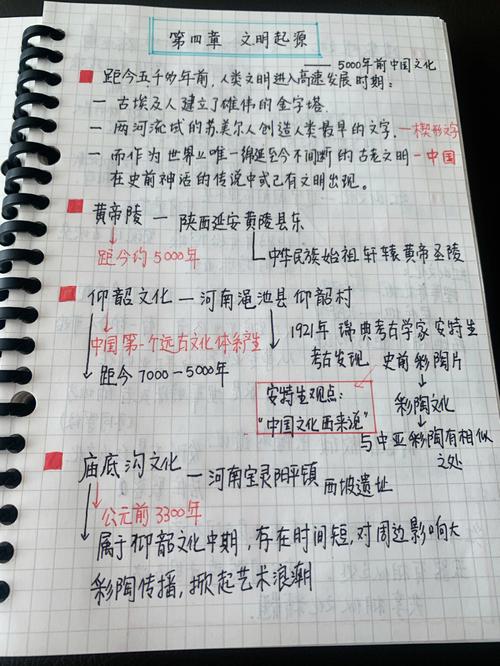 第四章 文明起源
—— 5000年前中国文化
距今五千多年前，人类文明进入高速发展时期：
— 古埃及人建立了雄伟的金字塔.
— 两河流域的苏美尔人创造人类最早的文字，—楔形文字
— 而作为世界上唯一绵延至今不间断的古老文明—中国
在史前神话的传说中或已有文明出现。
黄帝陵 — 陕西延安黄陵县东
距今约5000年
中华民族始祖轩辕黄帝丘陵
仰韶文化 — 河南渑池县仰韶村
中国第一个远古文化体系产生
1921年 瑞典考古学家安特生
考古发现 史前彩陶片
距今7000-5000年
彩陶文化
安特生观点：
"中国文化西来说"
与中亚彩陶有相似
之处
庙底沟文化 — 河南宝灵阳平镇 西坡遗址
公元前3300年
属于仰韶文化中期，存在时间短，对周边影响大
彩陶传播，掀起艺术浪潮